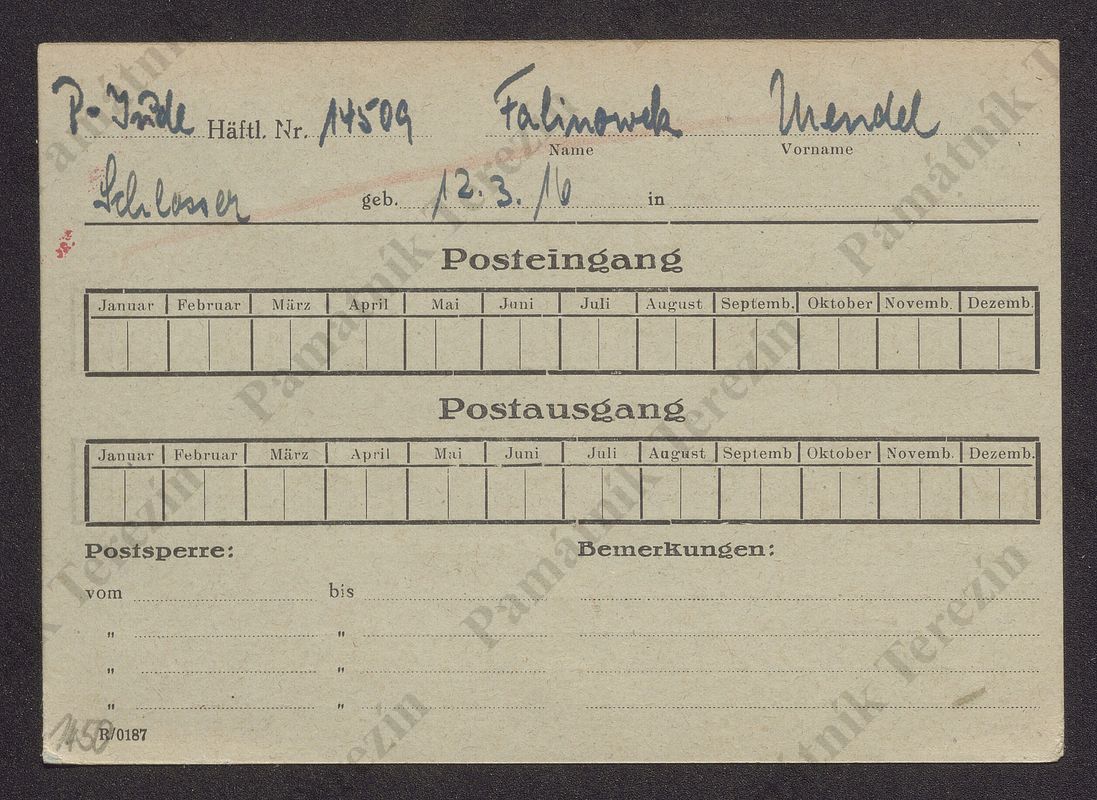 P-Jude Häftl. Nr. 14509 Falinowek Mendel
Name Vorname
Schlosser geb. 12.3.16 in
Posteingang
Januar Februar März April Mai Juni Juli August Septemb. Oktober Novemb. Dezemb.
Postausgang
Januar Februar März April Mai Juni Juli August Septemb Oktober Novemb. Dezemb.
Postsperre: Bemerkungen:
vom bis
" "
" "
" "
1450 R/0187
Památník Terezín